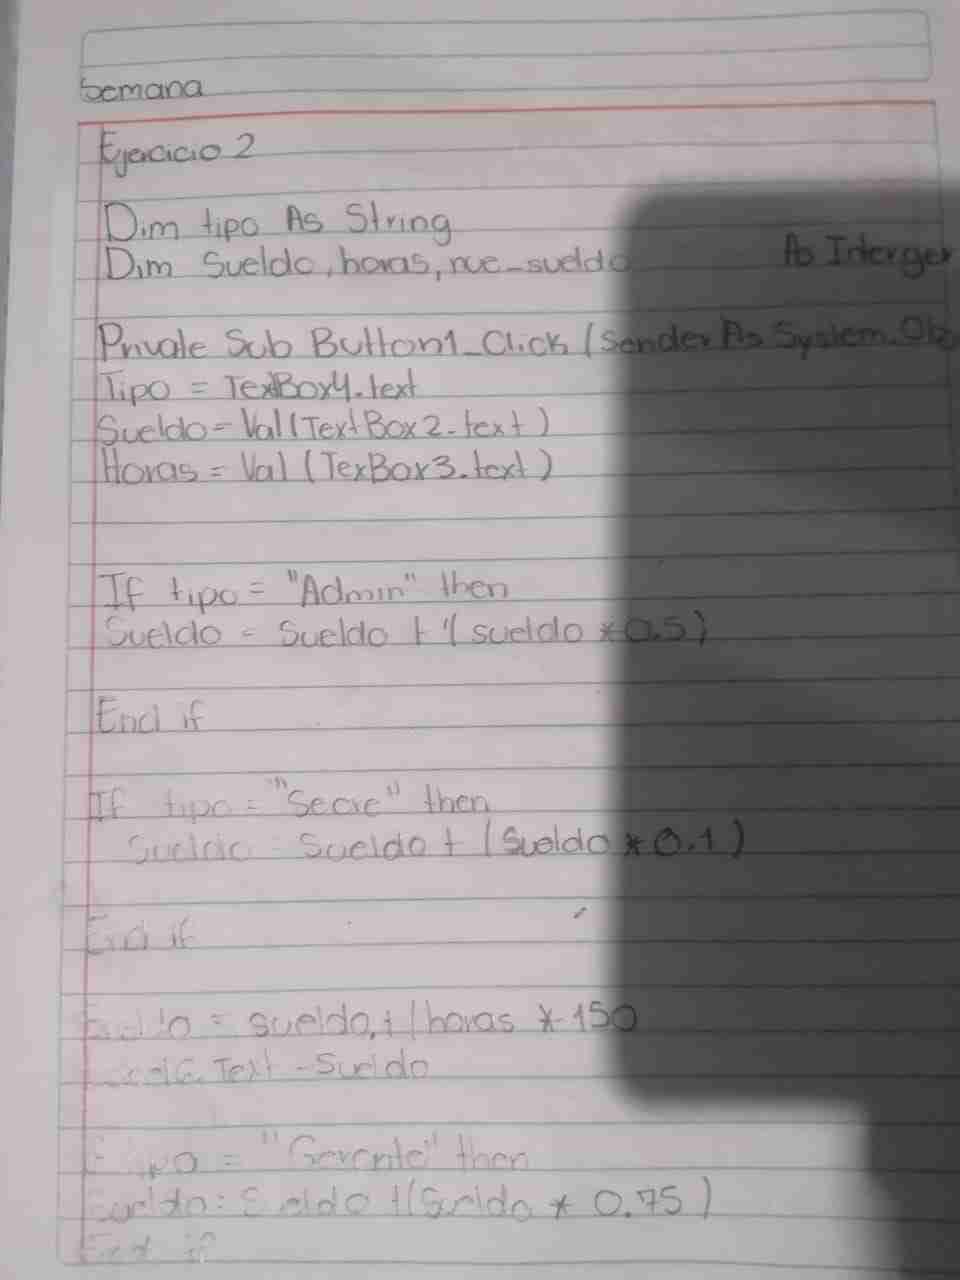 Semana
Ejercicio 2
Dim tipo As String
Dim Sueldo, horas, nue_sueldo As Interger
Private Sub Button1_Click (Sender As System.Ob
Tipo = TexBox4.text
Sueldo = Val(TextBox2.text)
Horas = Val (TexBox3.text)
If tipo = "Admin" then
Sueldo = Sueldo + (sueldo * 0.5)
End if
If tipo = "Secre" then
Sueldo = Sueldo + (Sueldo * 0.1)
End if
= sueldo, + (horas * 150
Text = Sueldo
tipo = "Gerente" then
Sueldo = Sueldo + (Sueldo * 0.75)
End if